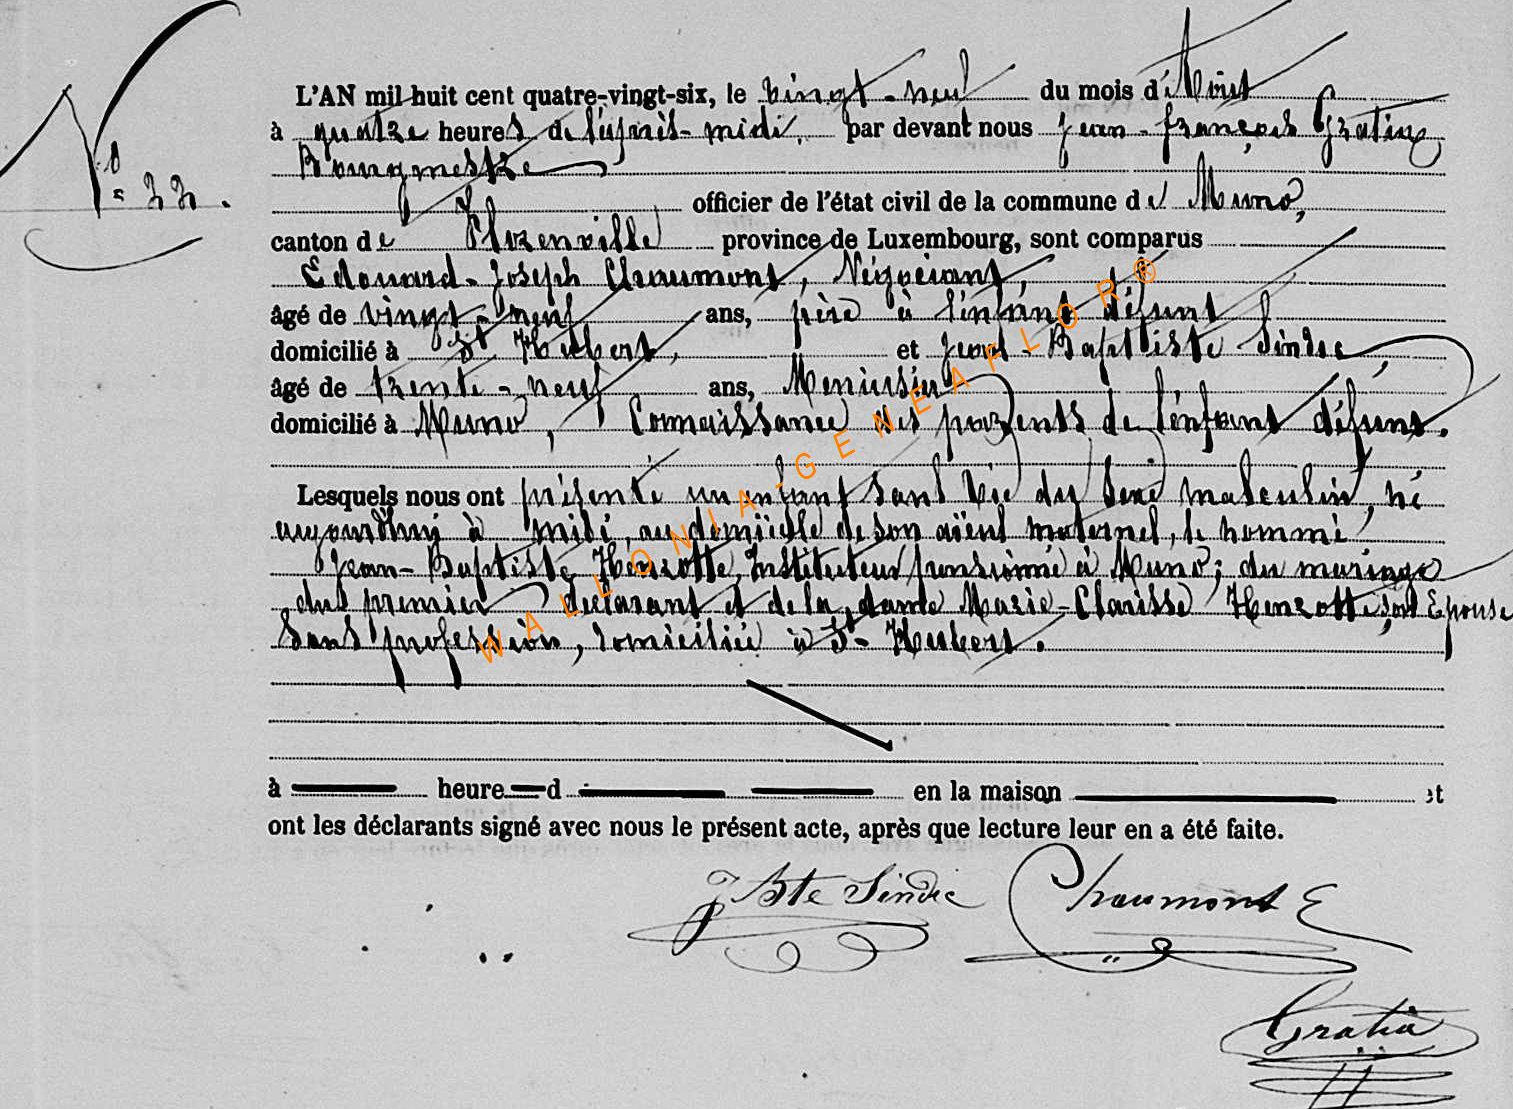 N° 22.
L'AN mil huit cent quatre-vingt-six, le vingt-neuf du mois d'Août
à quatre heures de l'après-midi, par devant nous Jean-françois Gratia
Bourgmestre
officier de l'état civil de la commune de Muno,
canton de Florenville province de Luxembourg, sont comparus
Edouard-Joseph Chaumont, Négociant,
âgé de vingt-neuf ans, père à l'enfant défunt
domicilié à St Hubert, et Jean-Baptiste Sindic,
âgé de trente-neuf ans, Menuisier
domicilié à Muno, Connaissance des parents de l'enfant défunt.
Lesquels nous ont présenté un enfant sans vie du sexe masculin, né
aujourd'hui à midi, au domicile de son aïeul maternel, le nommé
Jean-Baptiste Henrotte, Instituteur pensionné à Muno; du mariage
du premier déclarant et de la dame Marie-Clarisse Henrotte, son Epouse
sans profession, domiciliée à St-Hubert.
à heure d en la maison et
ont les déclarants signé avec nous le présent acte, après que lecture leur en a été faite.
J Bte Sindic Chaumont E
Gratia
WALLONIA-GENEAFLOR®